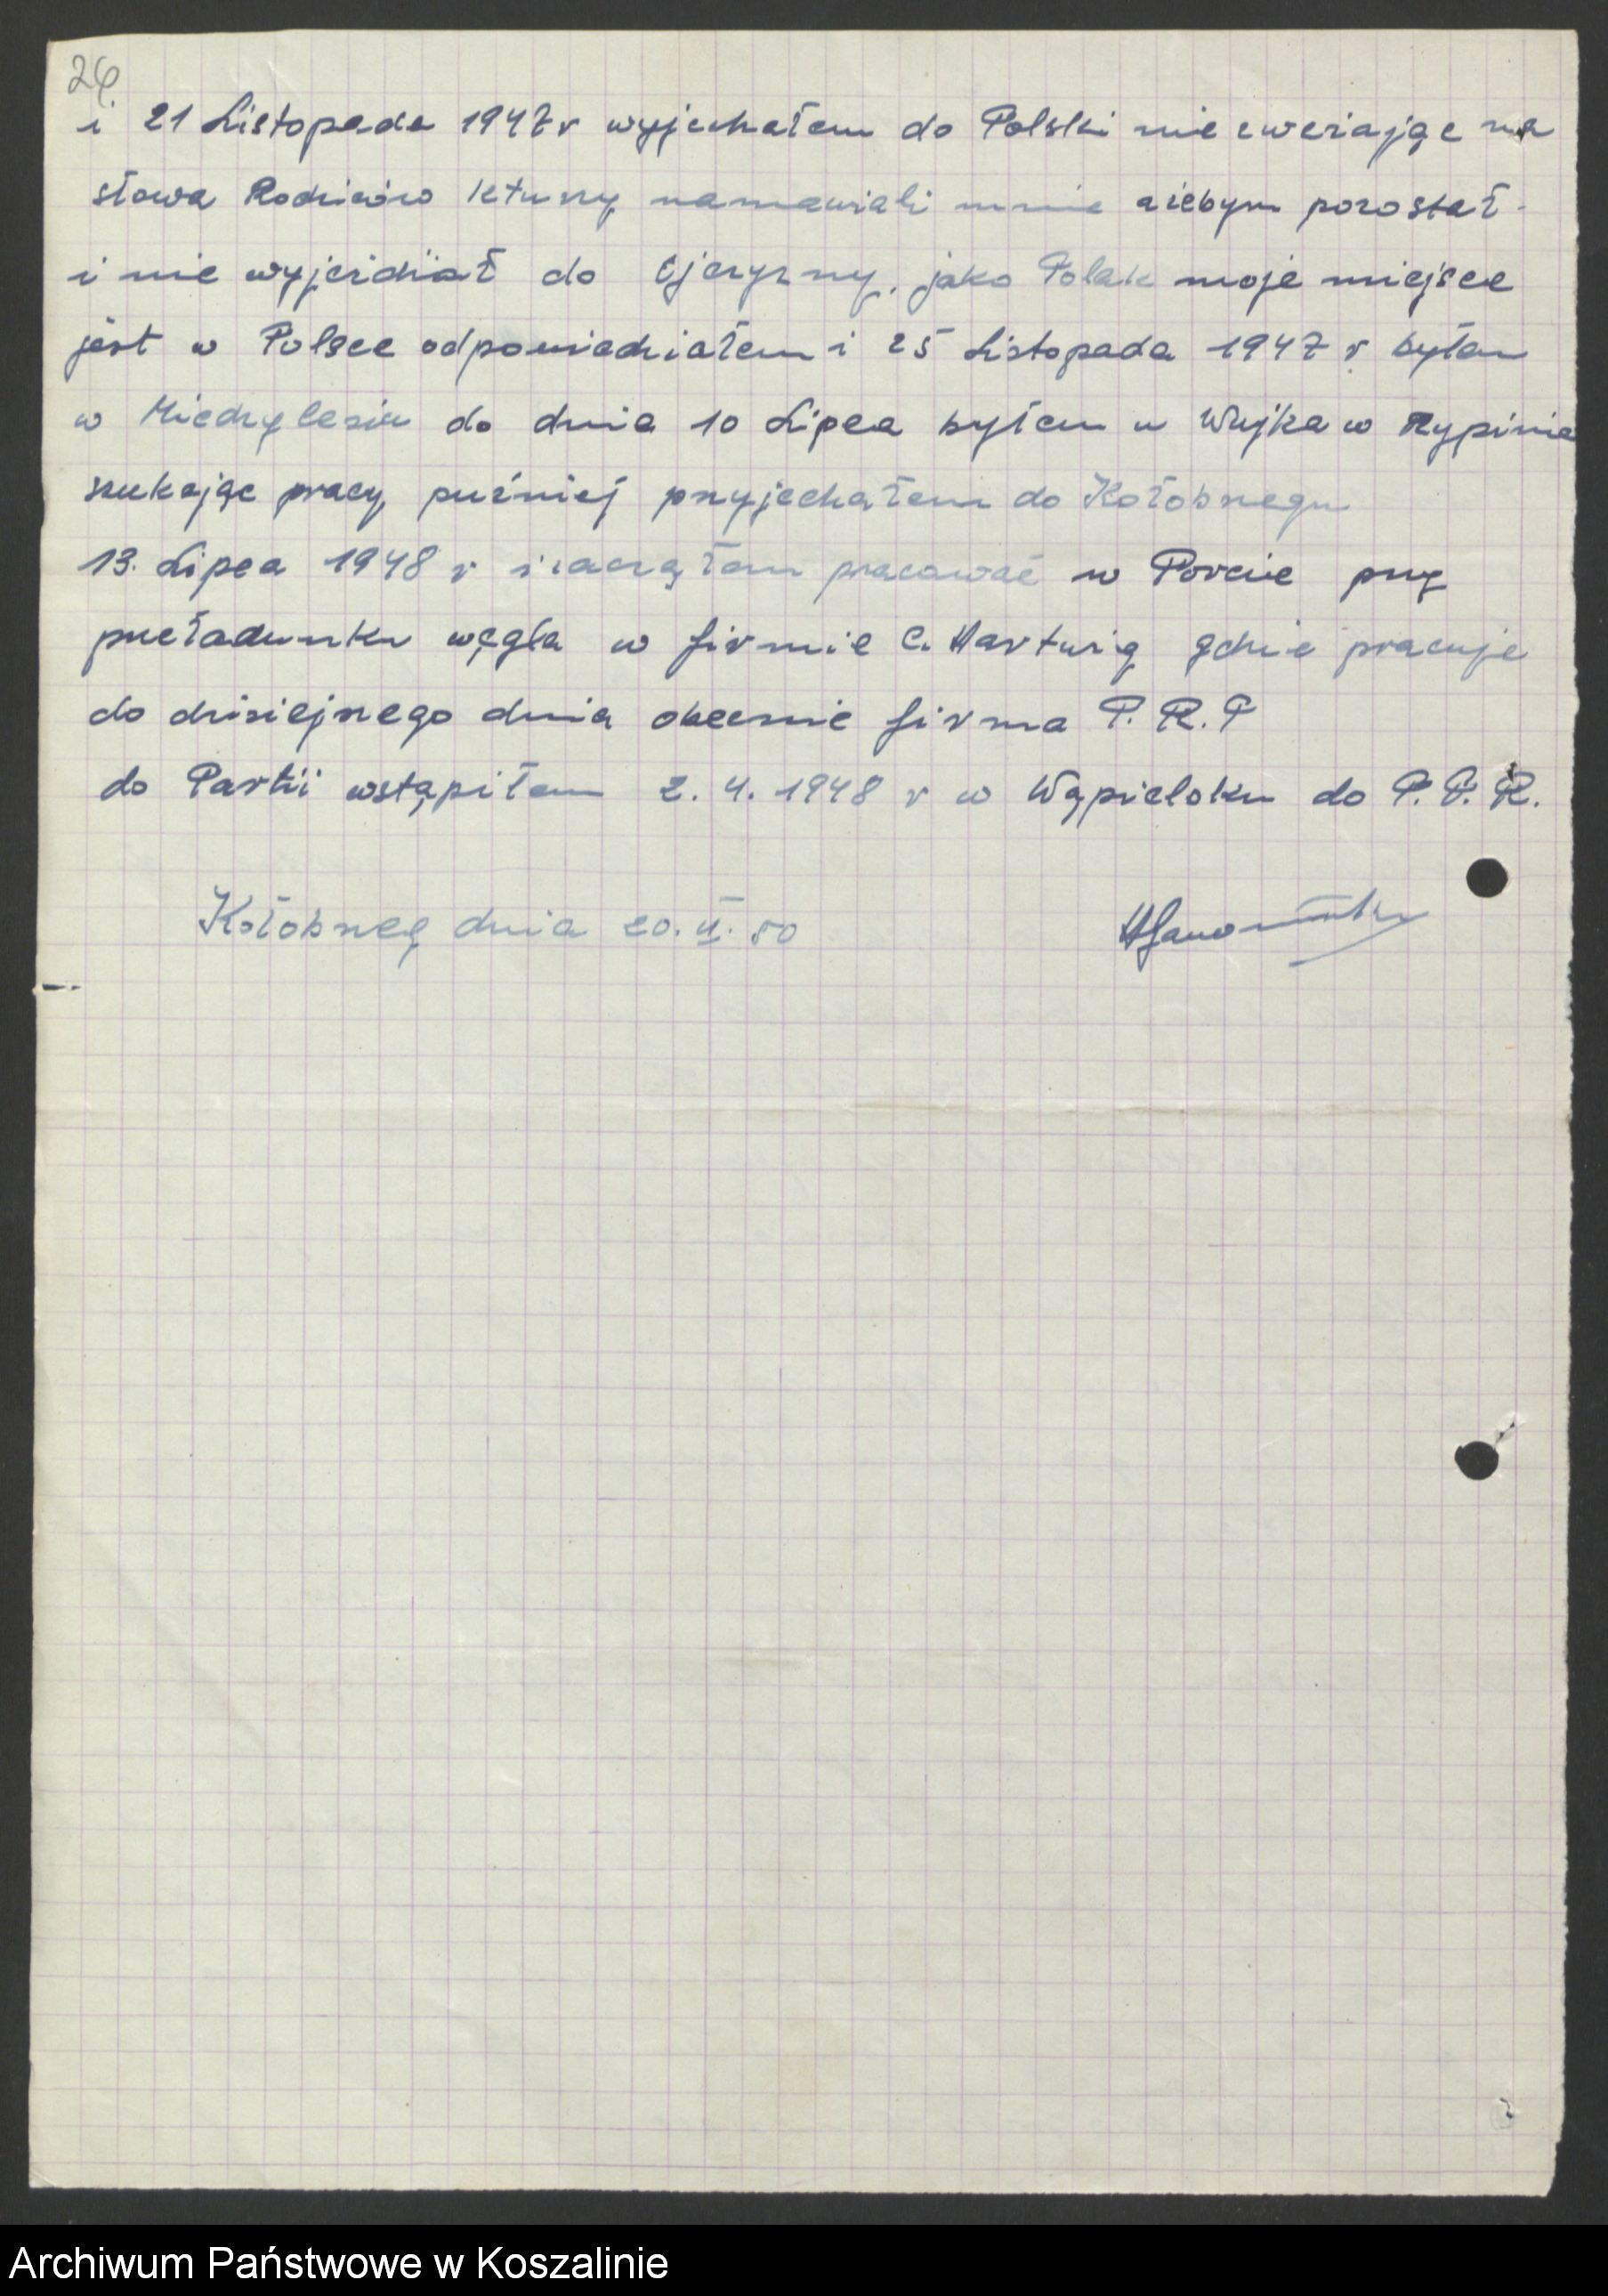 26.
i 21 Listopada 1947 r wyjechałem do Polski nie zweriając na
słowa Rodziców ktury namawiali mnie ażebym pozostał
i nie wyjerżdżiał do Ojeryzny, jako Polak moje miejsce
jest w Polsce odpowiedziałem i 25 Listopada 1947 r byłam
w Miedzylesiu do dnia 10 Lipca byłem u Wujka w Rypinie
szukając pracy puźniej przyjechałem do Kołobrzegu
13. Lipca 1948 r i zacząłam pracować w Porcie przy
przeładunku węgla w firmie C. Hartwig gdzie pracuje
do dzisiejszego dnia obecnie firma P. R. P
do Partii wstąpiłam 2. 4. 1948 r w Wąpieloku do P. P. R.
Kołobrzeg dnia 20. II. 50
Archiwum Państwowe w Koszalinie